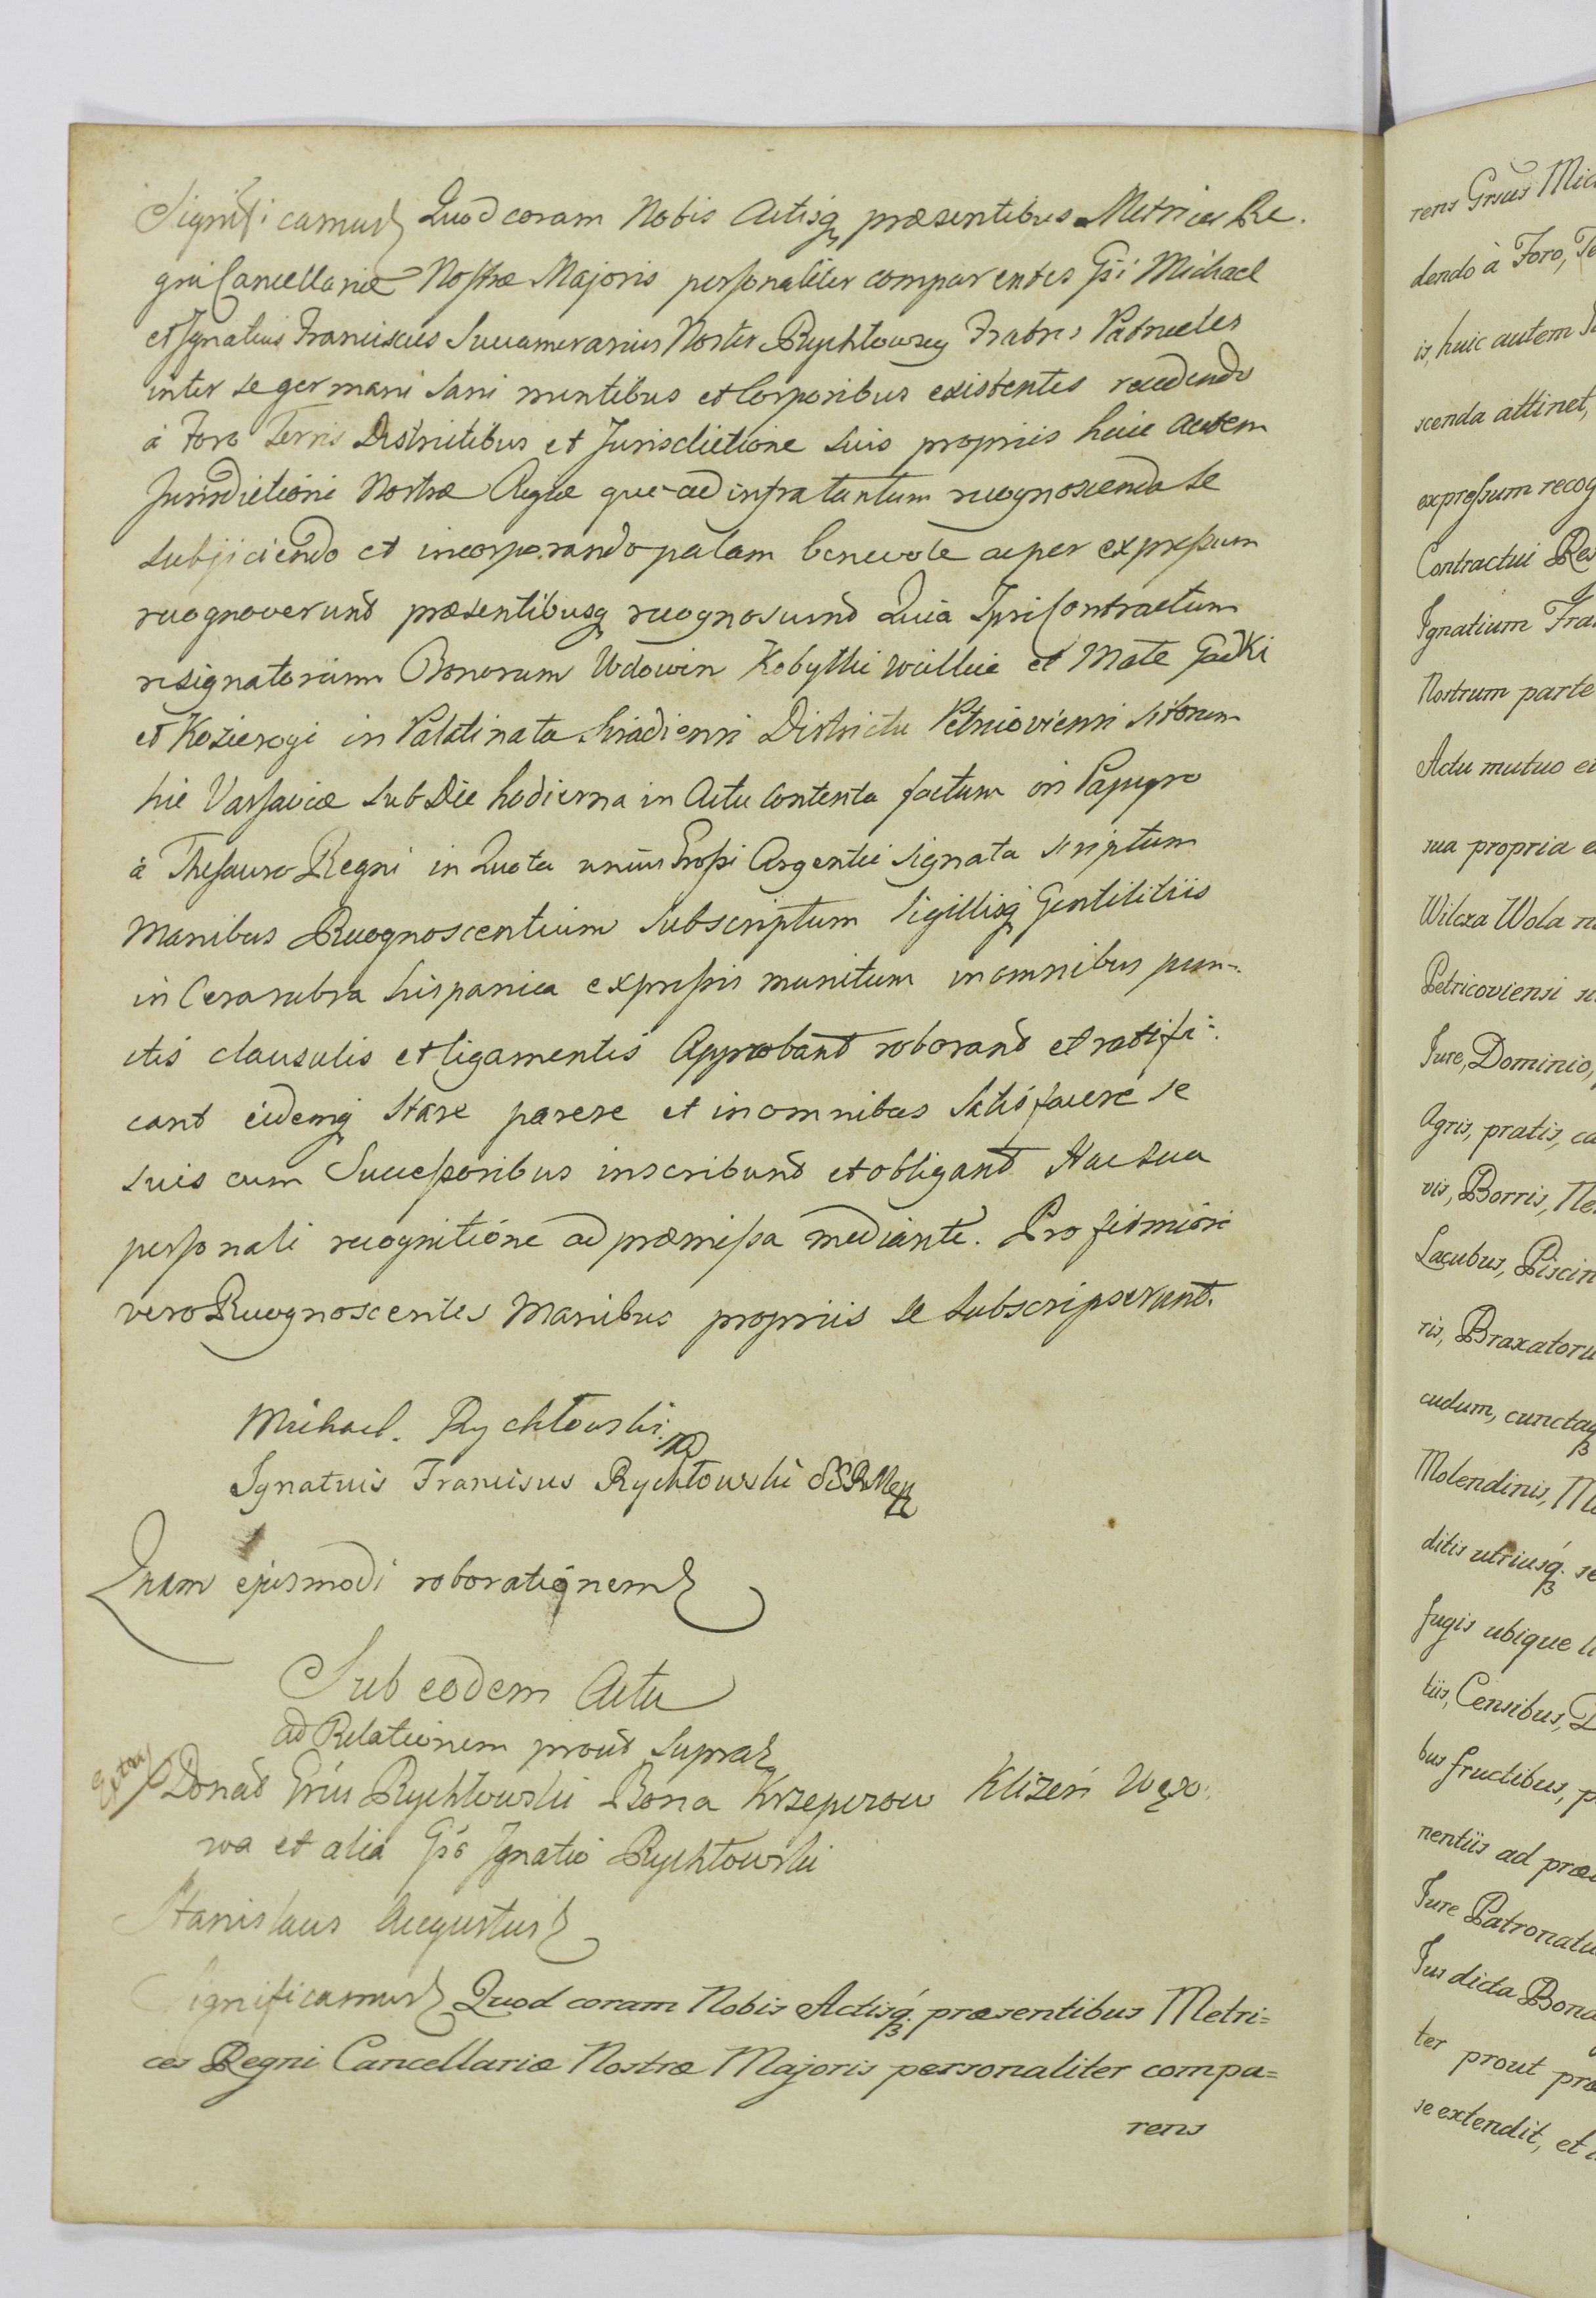 Significamus Quod coram Nobis Actisq præsentibus Metrices Re.
gni Cancellariæ Nostræ Majoris personaliter comparentes Gsi Michael
et Ignatius Franciscus Succamerarius Noster Rychłowscy Fratres Patrueles
inter se germani sani mentibus et Corporibus existentes recedendo
à Foro Terris Districtibus et Jurisdictione suis propriis huic autem
Jurisdictioni Nostræ Regiæ quo ad infra tantum recognoscenda se
subjiciendo et incorporando palam benevole ac per expressum
recognoverunt præsentibusq recognoscunt Quia Ipsi Contractum
resignatorium Bonorum Wdowin Kobyłki wielkie et Małe Gadki
et Kozierogi in Palatinatu Siradiensi Districtu Petricoviensi sitorum
hic Varsaviæ sub Die hodierna in Actu contenta factum in Papyro
à Thesauro Regni in Quota unius Grossi Argentei signata scriptum
Manibus Recognoscentium subscriptum Sigillisq Gentilitiis
in Cera rubra hispanica expressis munitum in omnibus pun-
ctis clausulis et ligamentis Approbant roborant et ratifi-
cant eidemq stare parere et in omnibus satisfacere se
suis cum Successoribus inscribunt et obligant Hac sua
personali recognitione ad præmissa mediante. Pro firmiori
vero Recognoscentes Manibus propriis se subscripserunt.
Michael. Rychłowski
Ignatius Franciscus Rychłowski
Quam ejusmodi roborationem
Sub eodem Actu
ad Relationem prout supra
Donat Grsus Rychłowski Bona Krzepczow Klizen Węxo
wa et alia Gso Ignatio Rychłowski
Stanislaus Augustus
Significamus Quod coram Nobis Actisq́ præsentibus Metri=
ces Regni Cancellariæ Nostræ Majoris personaliter compa=
rens
rens Grsus Mic
dendo à Foro, Te
is, huic autem
scenda attinet,
expressum recog
Contractui Res
Ignatium Fra
Nostrum parte
Actu mutuo e
sua propria
Wilcza Wola
Petricoviensi
Jure, Dominio,
Agris, pratis, ca
vis, Borris, Ne
Lacubus, Piscin
ris, Braxatoru
cudum, cunctaq
Molendinis, M
ditis utriusq́ se
fugis ubique
tiis, Censibus,
bus fructibus, p
nentiis ad præ
Jure Patronatu
Jus dicta Bona
ter prout præ
se extendit, et